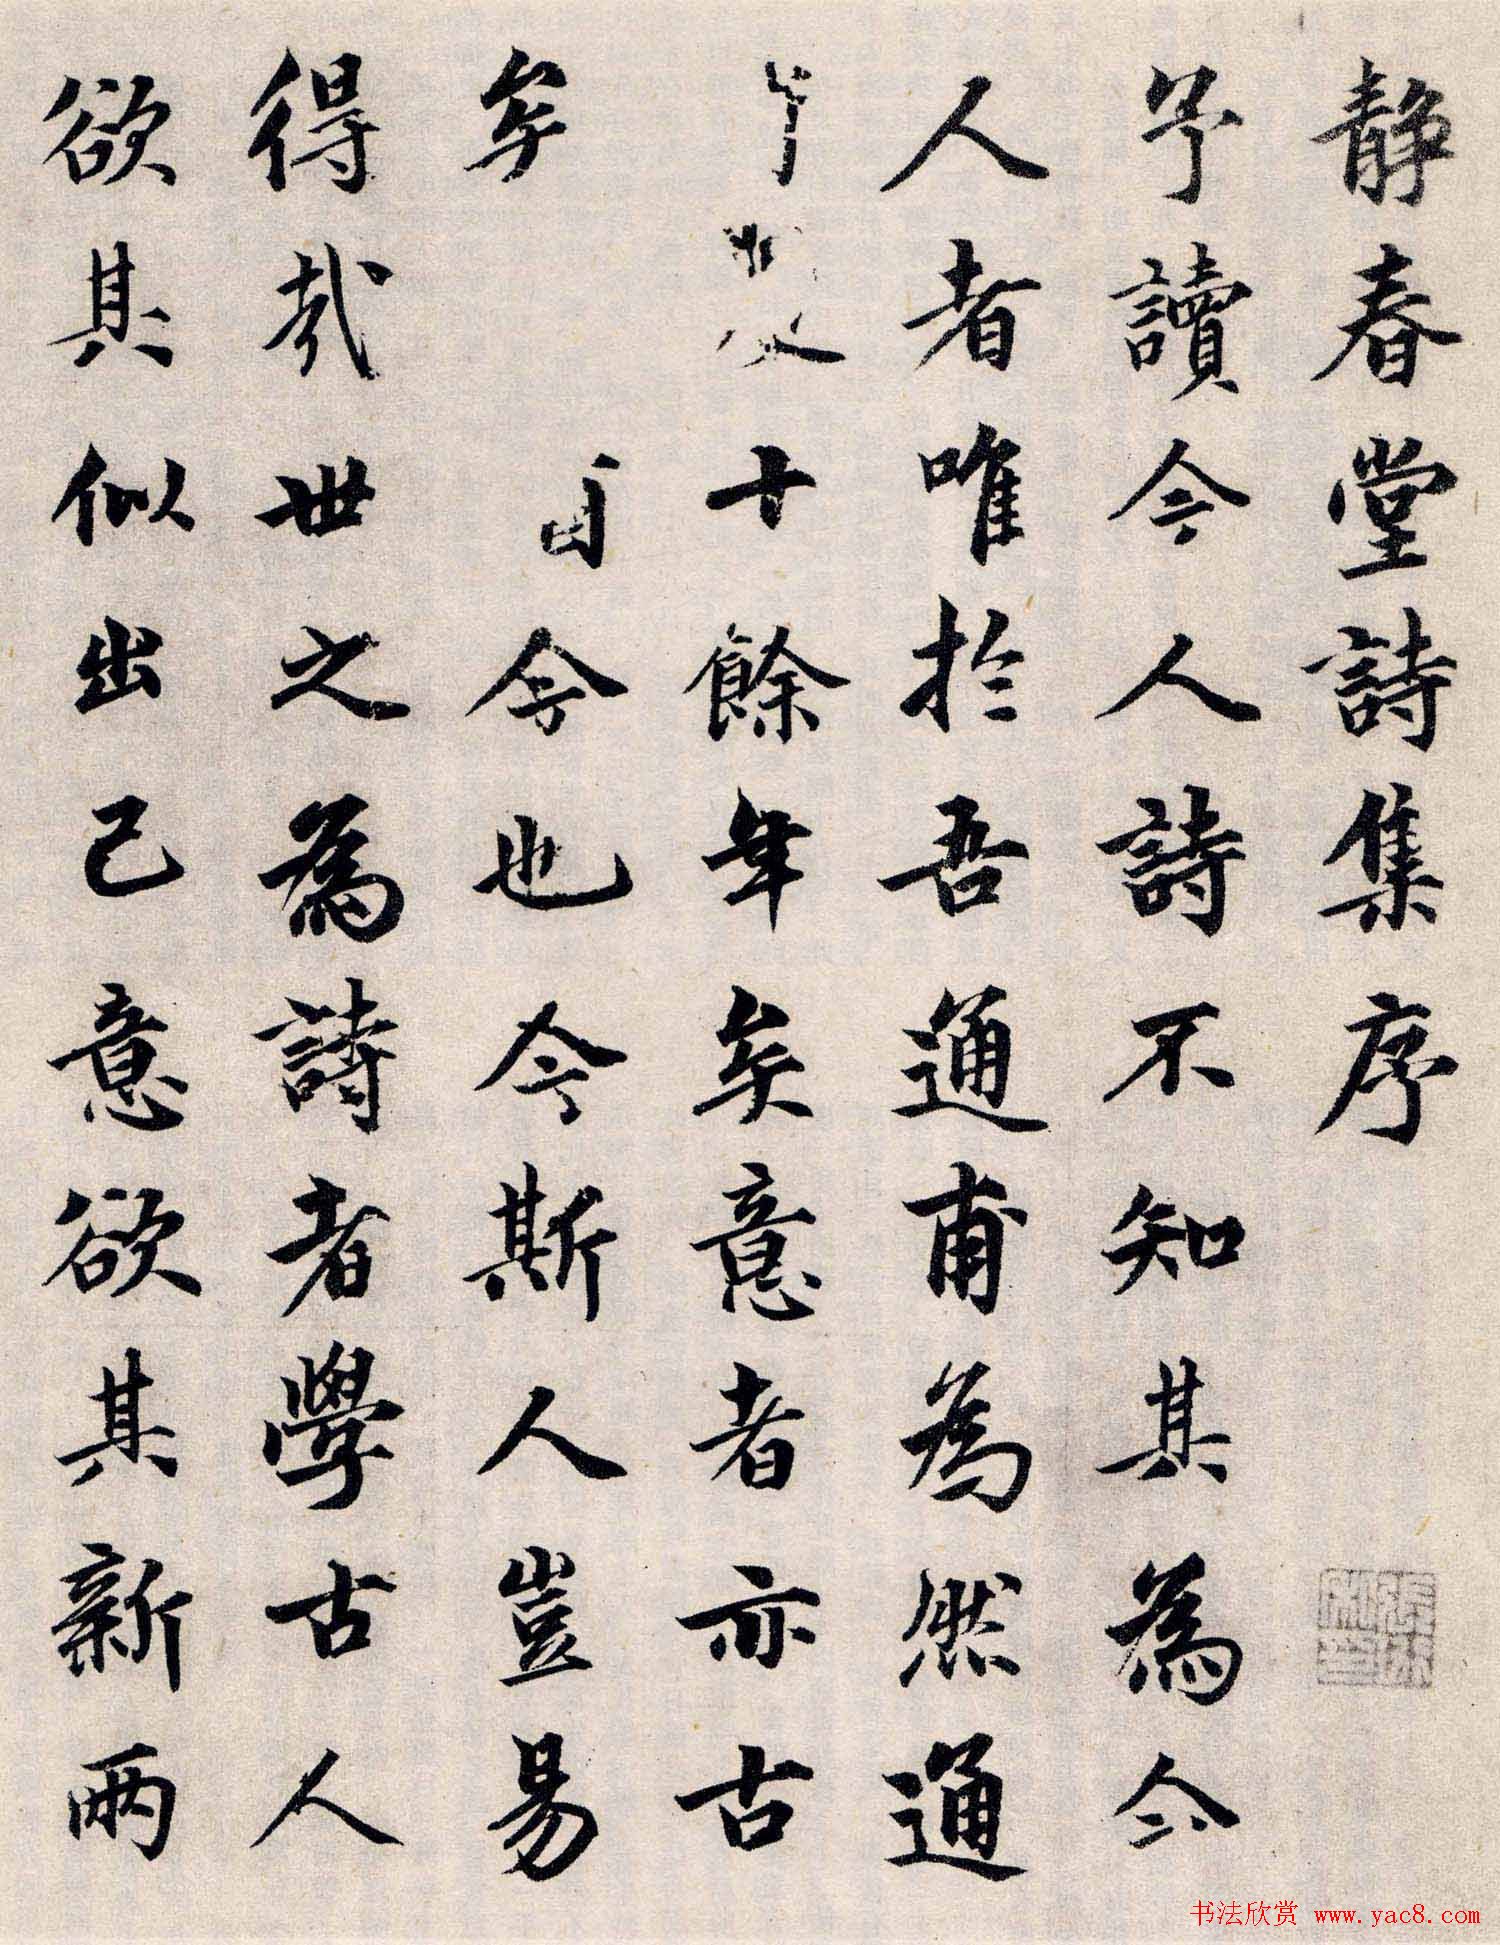 静春堂詩集序
予讀今人詩不知其為今
人者唯於吾通甫為然通
十餘年矣意者亦古
矣今也今斯人豈易
得哉世之為詩者學古人
欲其似出己意欲其新兩
书法欣赏 www.yac8.com